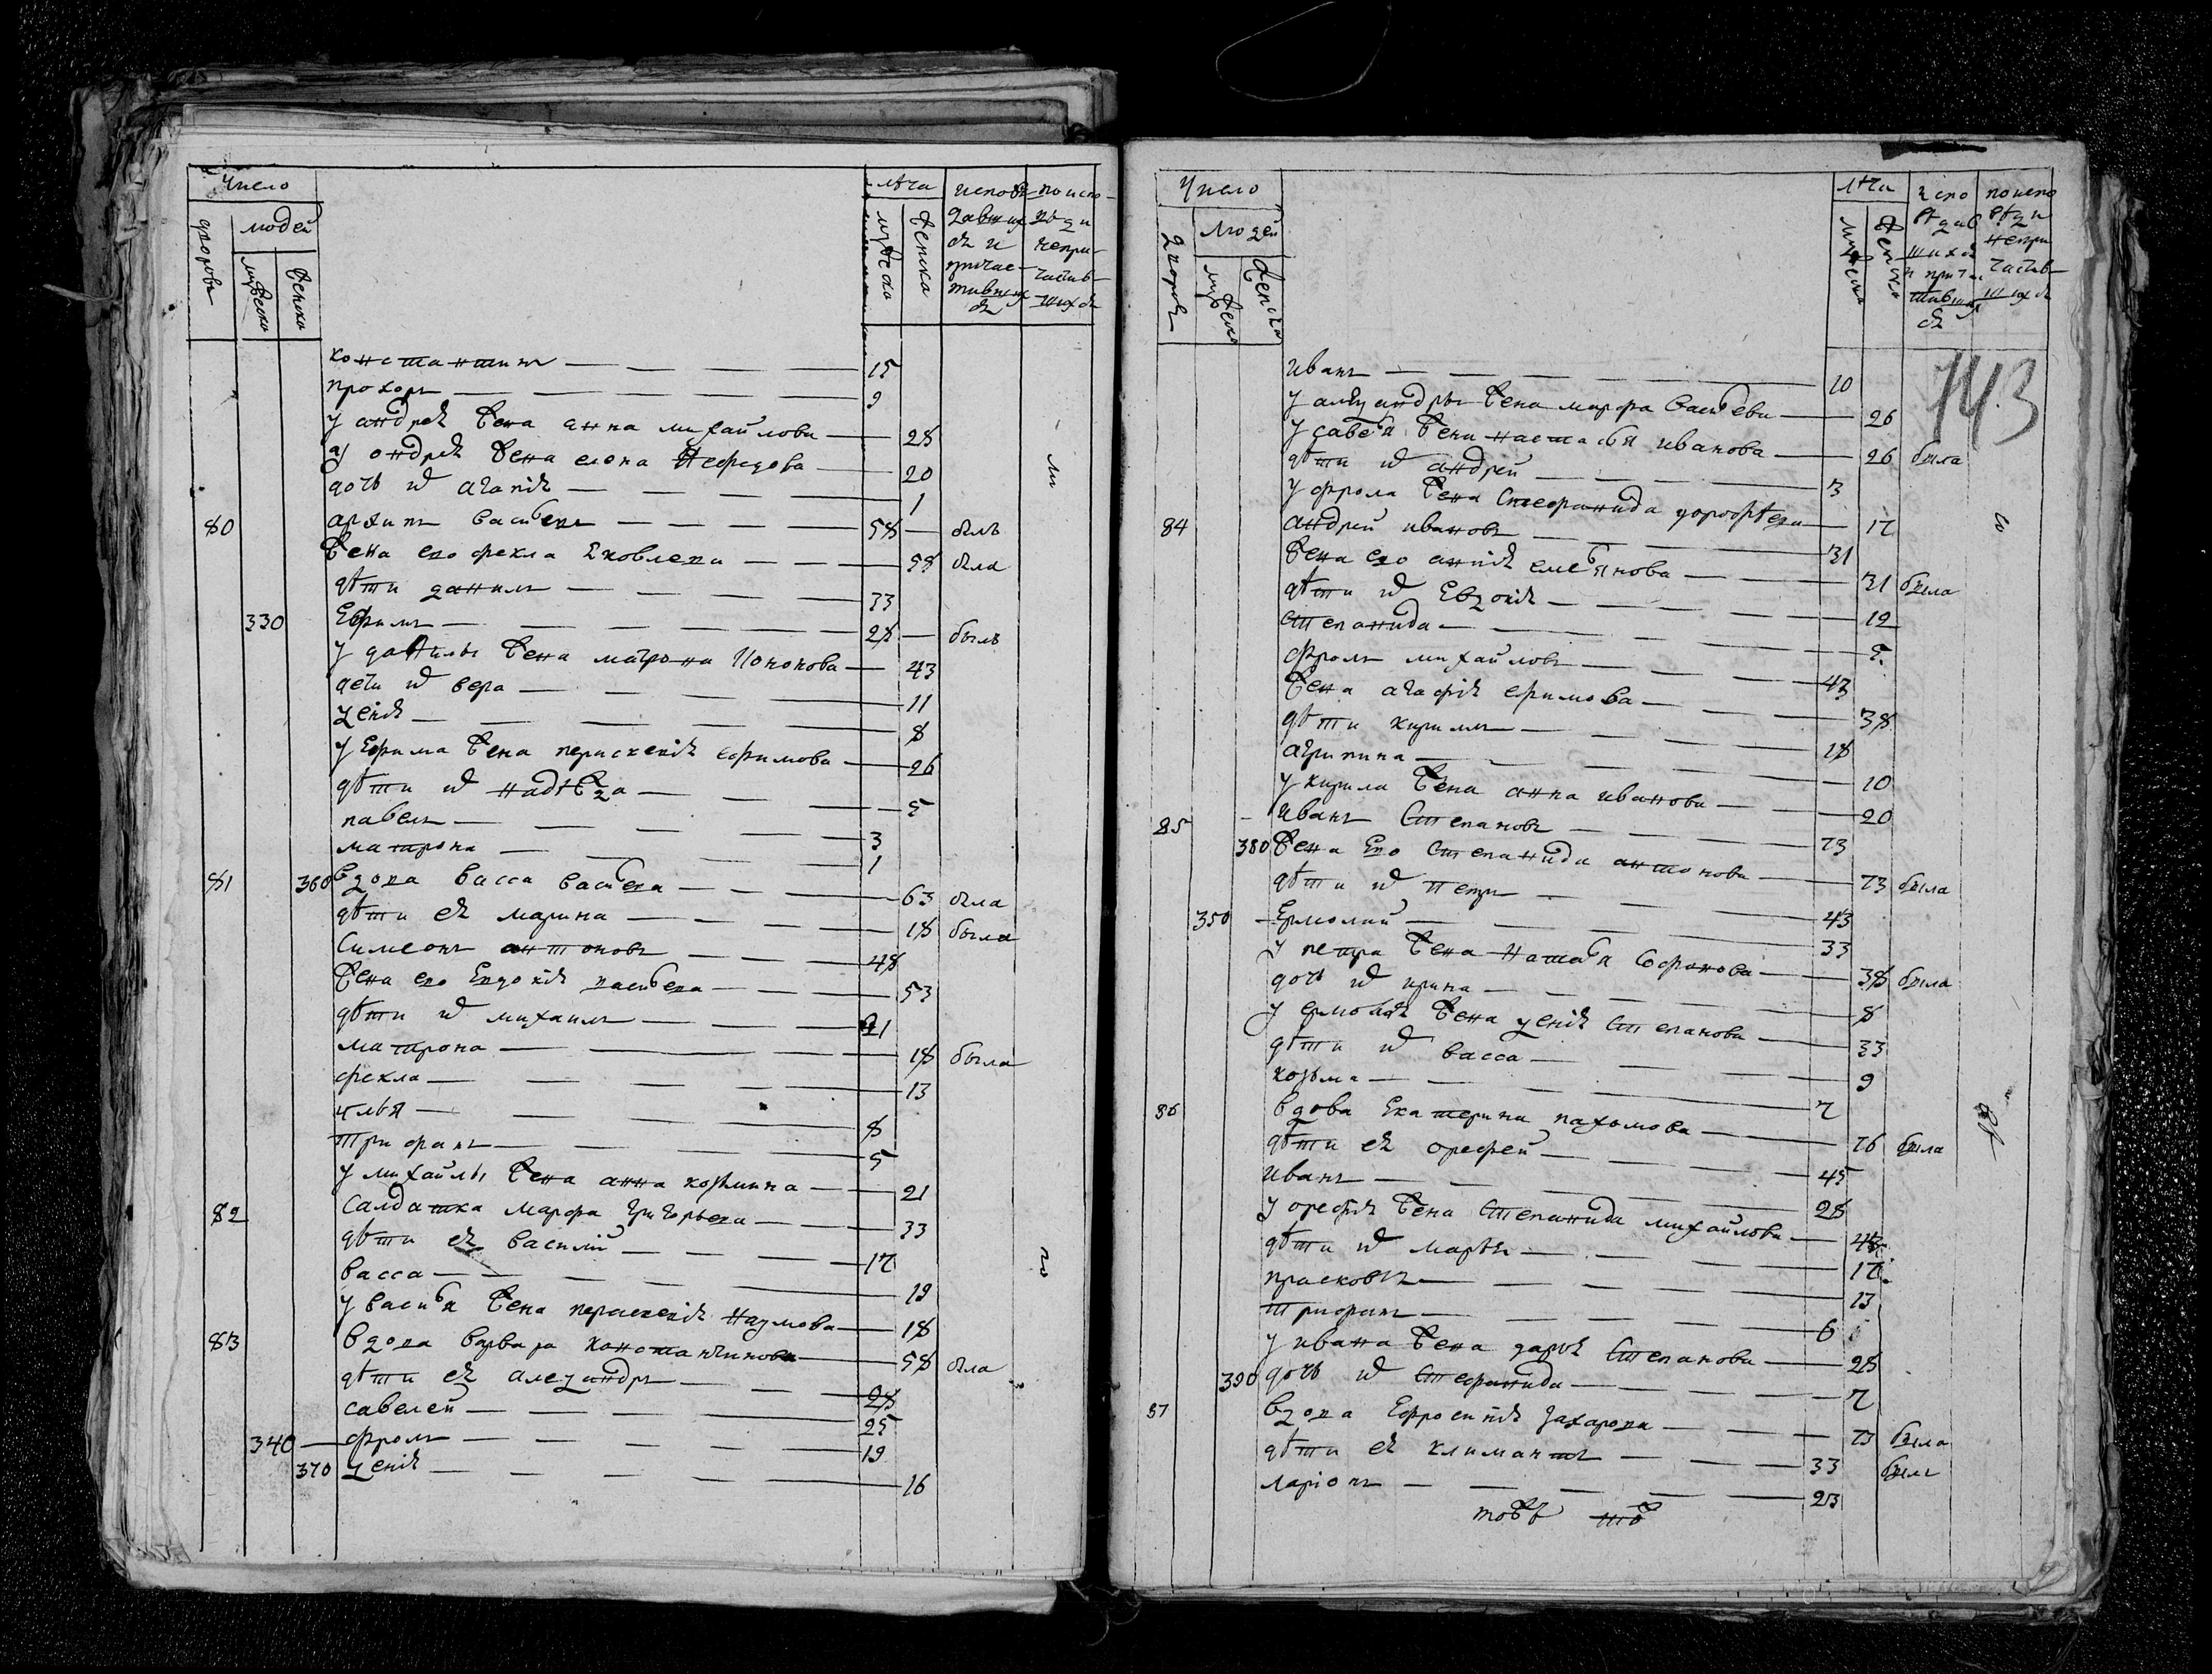 Число
людей
дворовъ
мужеска
женска
лѣта
мужеска
женска
исповѣ-
давших
ся и
причас-
тивших
ся
по испо-
вѣди
непри-
частив-
шихся
константинъ 15
прохоръ 9
у андрея жена анна михайлова 28
у ондрея жена елена Нефедова 20
дочь их агапия 1
80 архипъ васильевъ 58 былъ
жена ево фекла яковлева 58 была
дѣти данилъ 33
330 Ефимъ 28 былъ
у данилы жена матрона 43
дети их вера 11
8
у Ефима жена параскевия ефимова 26
дѣти их надѣжда 5
павелъ 3
матрона 1
81 360 вдова васса васильева 63 была
дѣти ея марина 18 была
Симеонъ антоновъ 48
жена ево Евдокия васильева 53
дѣти их михаилъ 21
матрона 18 была
фекла 13
илья 8
трифанъ 5
у михайлы жена анна козмина 21
82 салдатка марфа григорьева 33
дѣти ея василий 17
васса 19
у василья жена параскевия наумова 18
83 вдова варвара константинова 58 была
дѣти ея александръ 28
савелей 25
340 фролъ 19
370 16
Число
людей
дворовъ
мужеска
женска
лѣта
мужеска
женска
испо
вѣдав
шихся
и прича
тивших
ся
по испо
вѣди
непри
частив
шихся
143
иванъ 10
у александры жена марфа васильева 26
у савелья жена настасья иванова 26 была
дѣти их андрей 3
у фрола жена Стефанида дорофѣева 17
84 андрей ивановъ 31
жена ево анния емельянова 31 была
дѣти их Евдокия 12
степанида 5
фролъ михайловъ 43
жена агафия ефимова 38
дѣти кирилъ 18
агрипина 10
у кирила жена анна иванова 20
85 иванъ Степановъ 73
380 жена Ево Степанида антонова 73 была
дѣти их петръ 43
350 Ермолай 33
у петра жена наталья Софонова 38 была
дочь их ирина 8
у ермолая жена Степанова 33
дѣти их васса 9
козьма 7
86 вдова Екатерина пахомова 76 была
дѣти ея орефей 45
иванъ 28
у орефия жена Степанида михайлова 43
дѣти их марья 17
прасковья 13
трифанъ 6
у ивана жена дарья Степанова 28
390 дочь их Стефанида 7
87 вдова Ефросиния захарова 73 была
дѣти ея климантъ 33 былъ
ларионъ 23